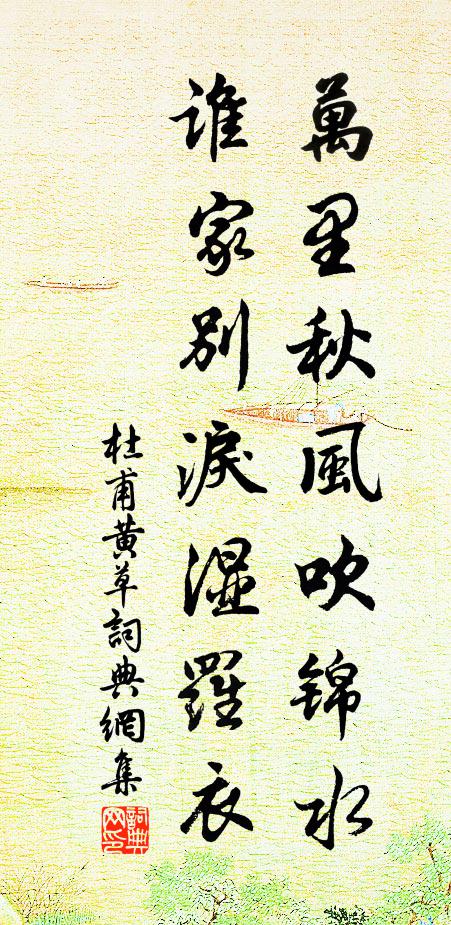 萬里秋風吹錦水
誰家別淚濕羅衣
杜甫黄草詞典網集
詞典
网印